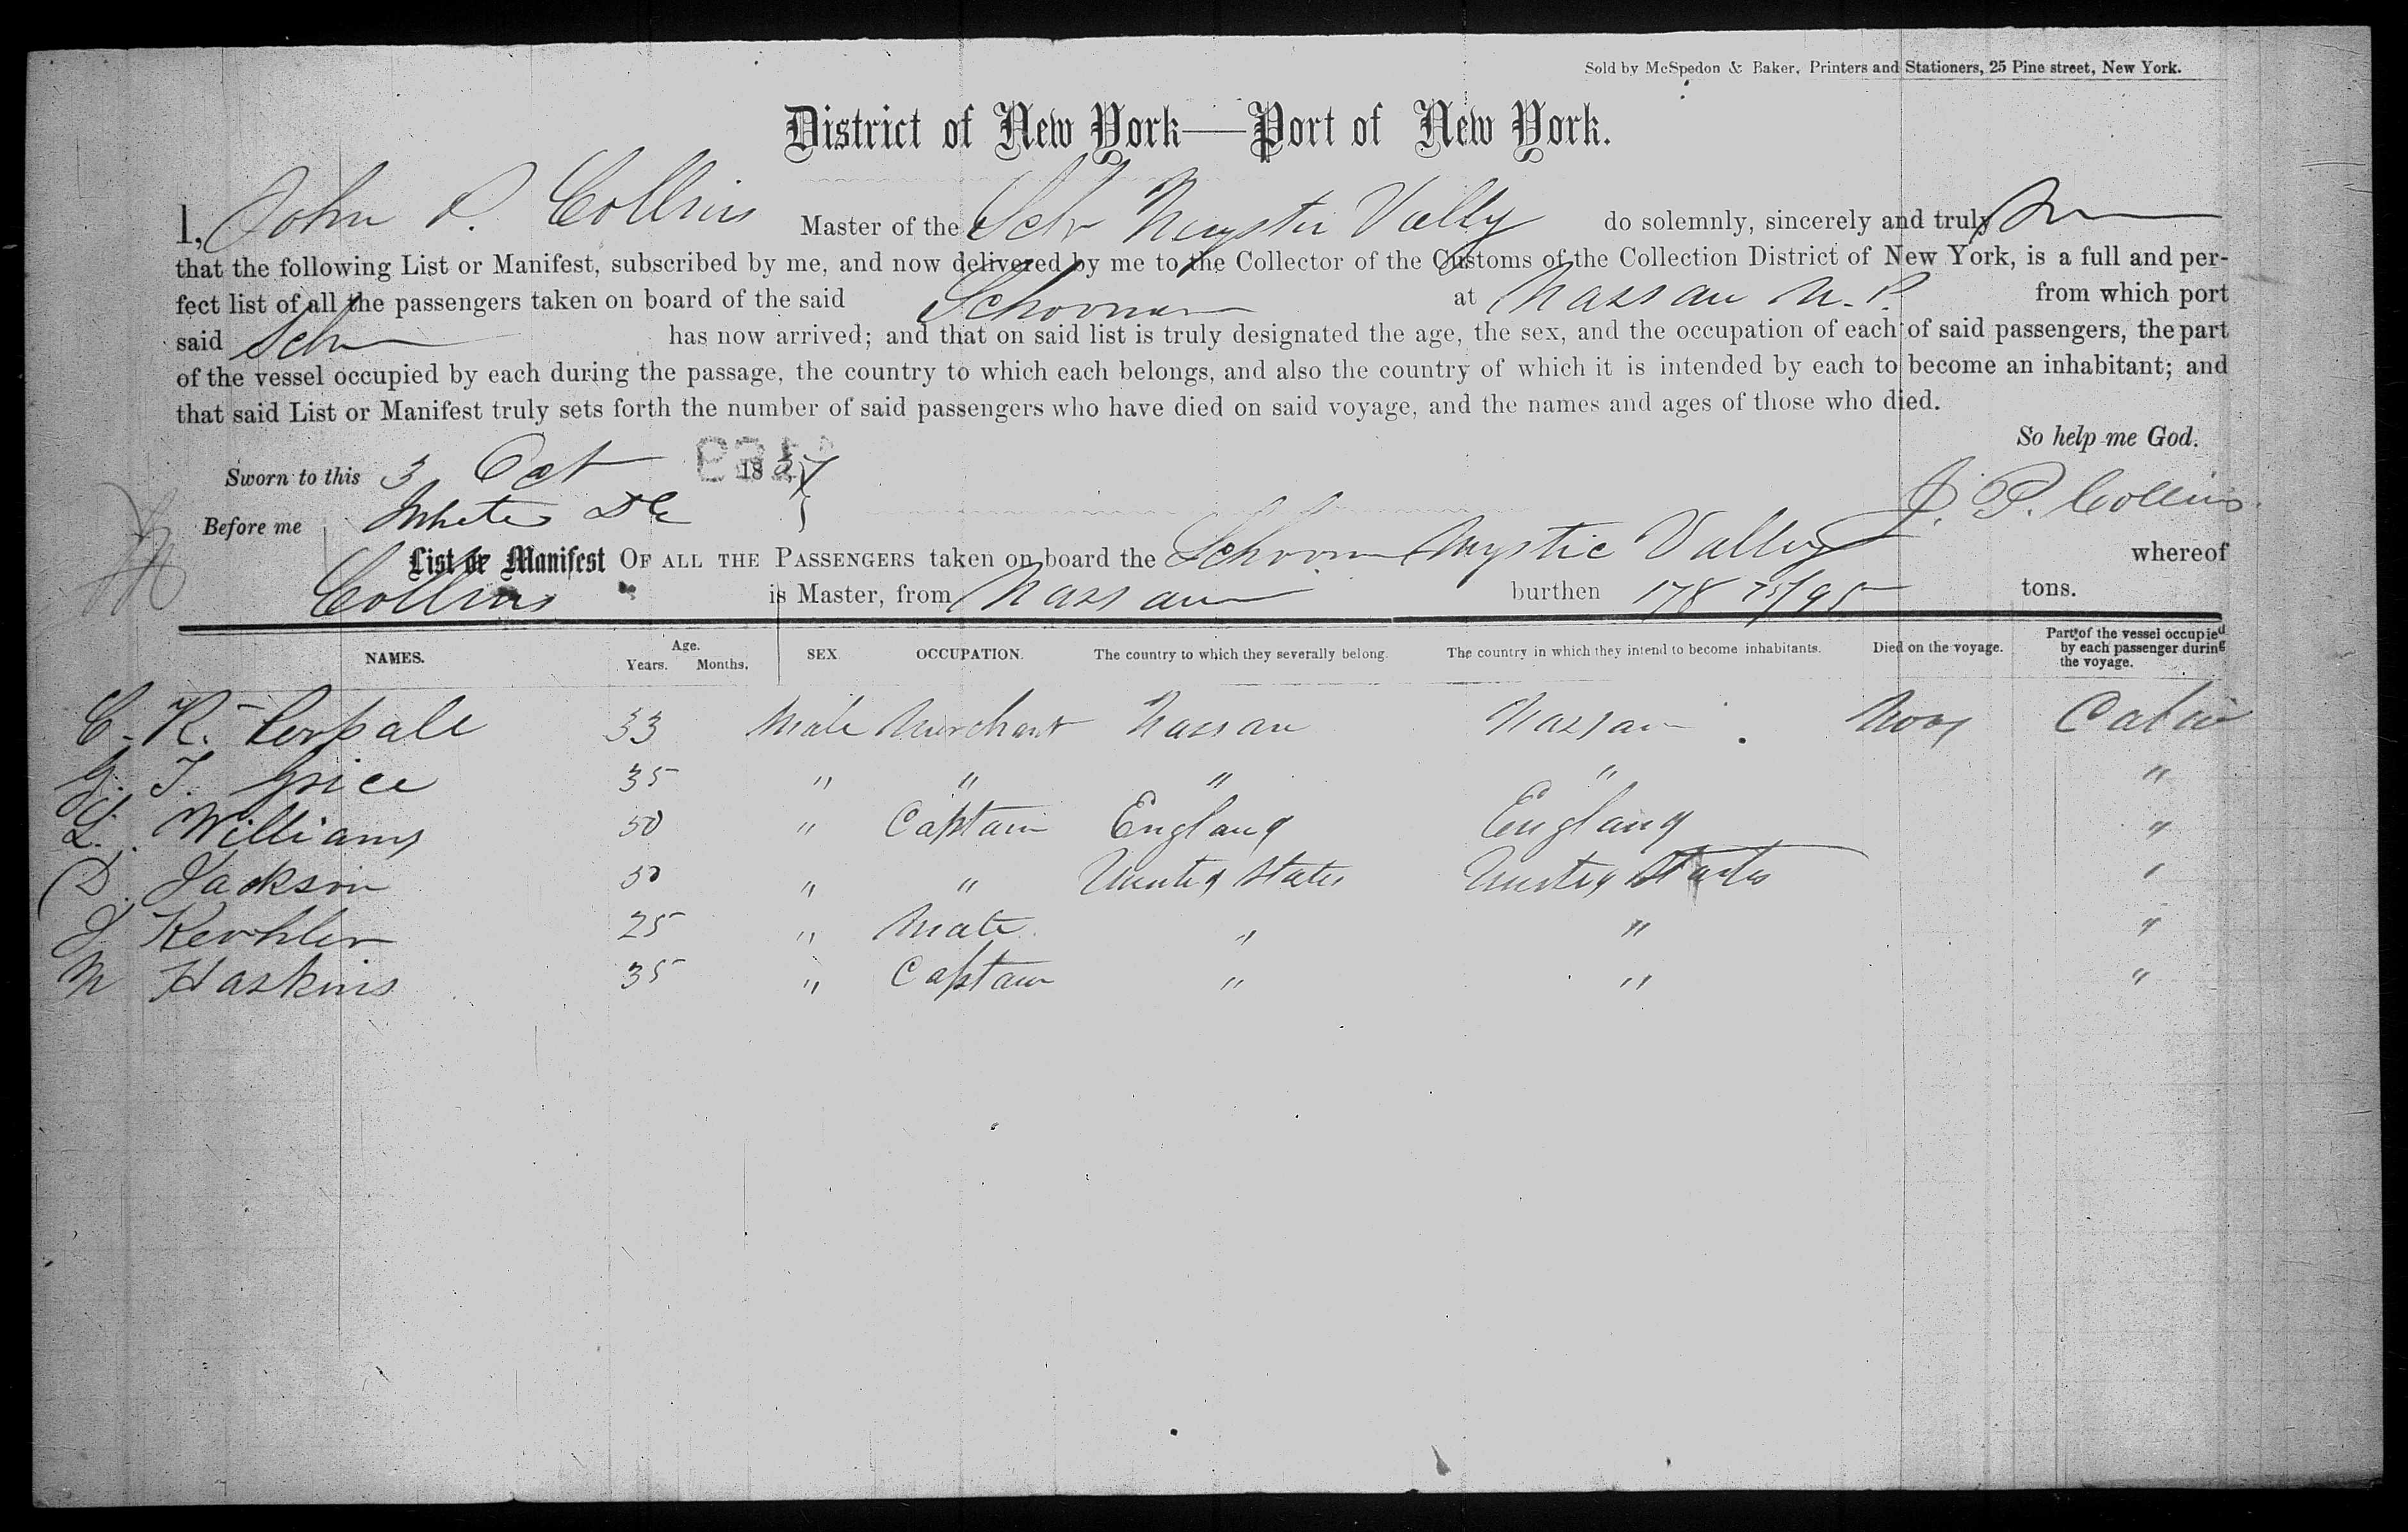 Sold by McSpedon & Baker, Printers and Stationers, 25 Pine street, New York.
District of New York—Port of New York.
I, John P. Collins Master of the Schr Mystic Vally do solemnly, sincerely and truly
that the following List or Manifest, subscribed by me, and now delivered by me to the Collector of the Customs of the Collection District of New York, is a full and per-
fect list of all the passengers taken on board of the said Schooner at Nassau N.P. from which port
said Schr has now arrived; and that on said list is truly designated the age, the sex, and the occupation of each of said passengers, the part
of the vessel occupied by each during the passage, the country to which each belongs, and also the country of which it is intended by each to become an inhabitant; and
that said List or Manifest truly sets forth the number of said passengers who have died on said voyage, and the names and ages of those who died.
So help me God.
Sworn to this 3 Oct 1857
Before me J. P. Collins
List or Manifest OF ALL THE PASSENGERS taken on board the Schooner Mystic Valley whereof
Collins is Master, from Nassau burthen 178 75/95 tons.
NAMES. Age. Years. Months. SEX. OCCUPATION. The country to which they severally belong. The country in which they intend to become inhabitants. Died on the voyage. Part of the vessel occupied by each passenger during the voyage.
C. R. 33 Male Merchant Nassau Nassau Cabin
G. T. Grice 35 " " " " "
L. Williams 50 " Captain England England "
D. Jackson 50 " " United States United States "
J Keohler 25 " Mate " " "
N Haskins 35 " Captain " " "